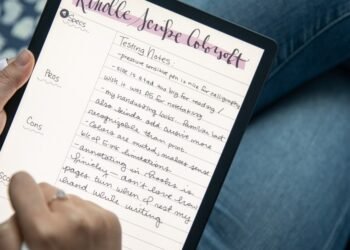 Kindle Scribe Colorsoft
Specs
Testing Notes:
-pressure sensitive pen is nice for calligraphy
-size is a tad too big for reading /
wish it was A5 for notetaking
-my handwriting looks familiar but
also kinda odd, cursive more
recognizable than print
-Colors are muted, makes sense
b/c of E-ink limitations
-annotating in ebooks is
finicky - don't love how
pages turn when I rest my
hand while writing
Pros
Cons